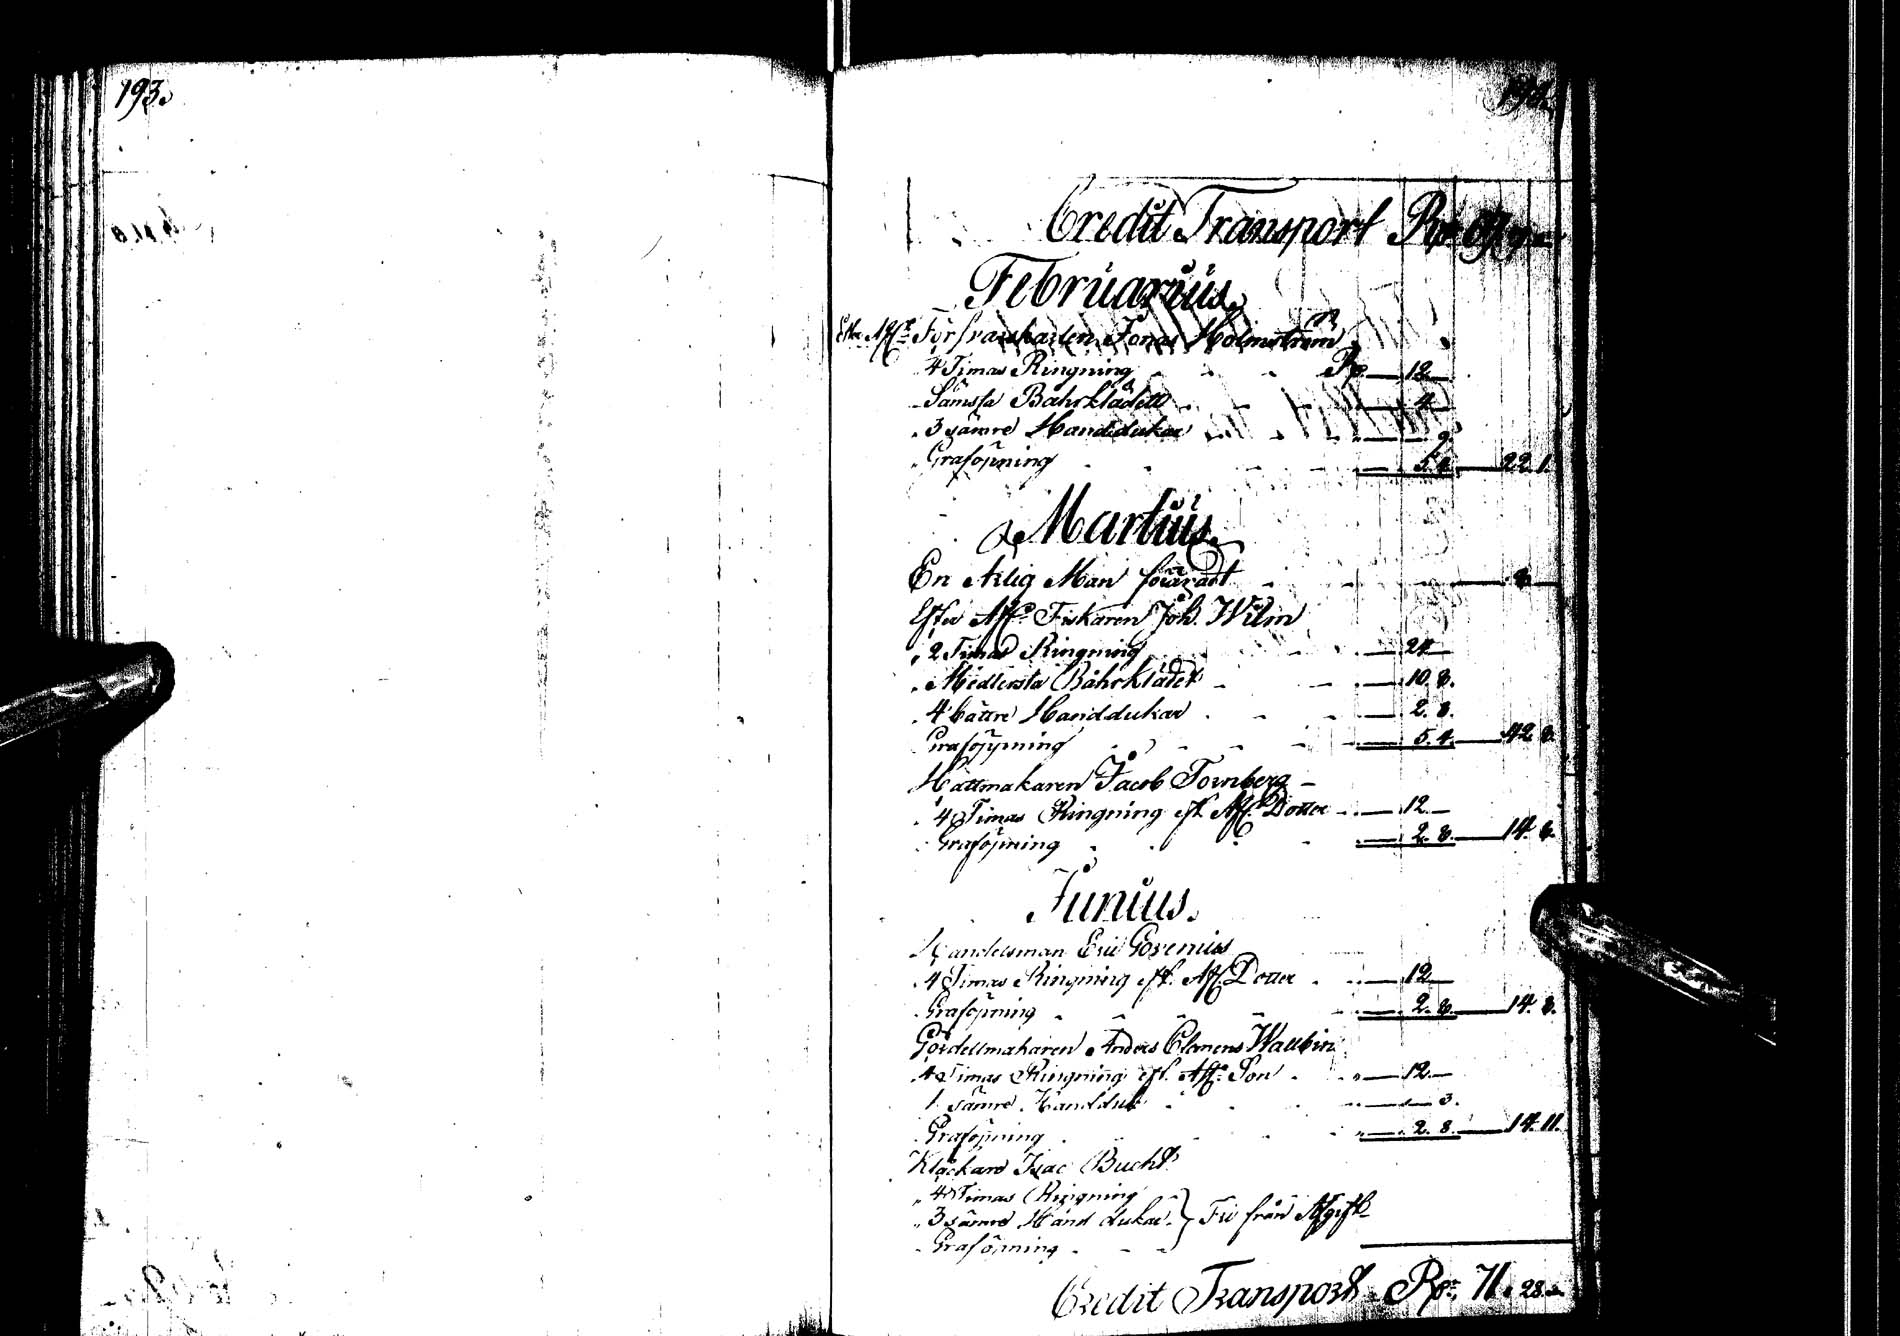 193.
194.
Credit Transport Rd
Februarius.
Eftr. Aflne Försvarskarlen Jonas Holmström
¼ Timas Ringning Rd — 12 —
Sämsta Båhrklädett — 4 —
3 sämre Handdukar — 9.
Graföpning — 5. 4. — 22. 1.
Martius.
En Ärlig Man föräradt — 8 —
Efter Afl. Fiskaren Joh. Wilm
½ Timas Ringning — 24 —
Medlersta Båhrklädet — 10. 8.
4 bättre Handdukar — 2. 8.
Graföpning — 5. 4. — 42. 8.
Hattmakaren Jacob Tornberg —
¼ Timas Ringning eft. Afl. Dotter — 12 —
Graföpning — 2. 8. — 14. 8.
Junius.
Handelsman Eric Govenius
¼ Timas Ringning eft. Afl. Dotter — 12 —
Graföpning — 2. 8. — 14. 8.
Gördelmakaren Anders Clemens Wallbin
¼ Timas Ringning eft. Afl. Son — 12 —
1 sämre Handduk — 3.
Graföpning — 2. 8. — 14. 11.
Klåckare Isac Bucht
¼ Timas Ringning
3 sämre Hand dukar } Fri från Afgift
Graföpning
Credit Transport Rd 71. 28. —